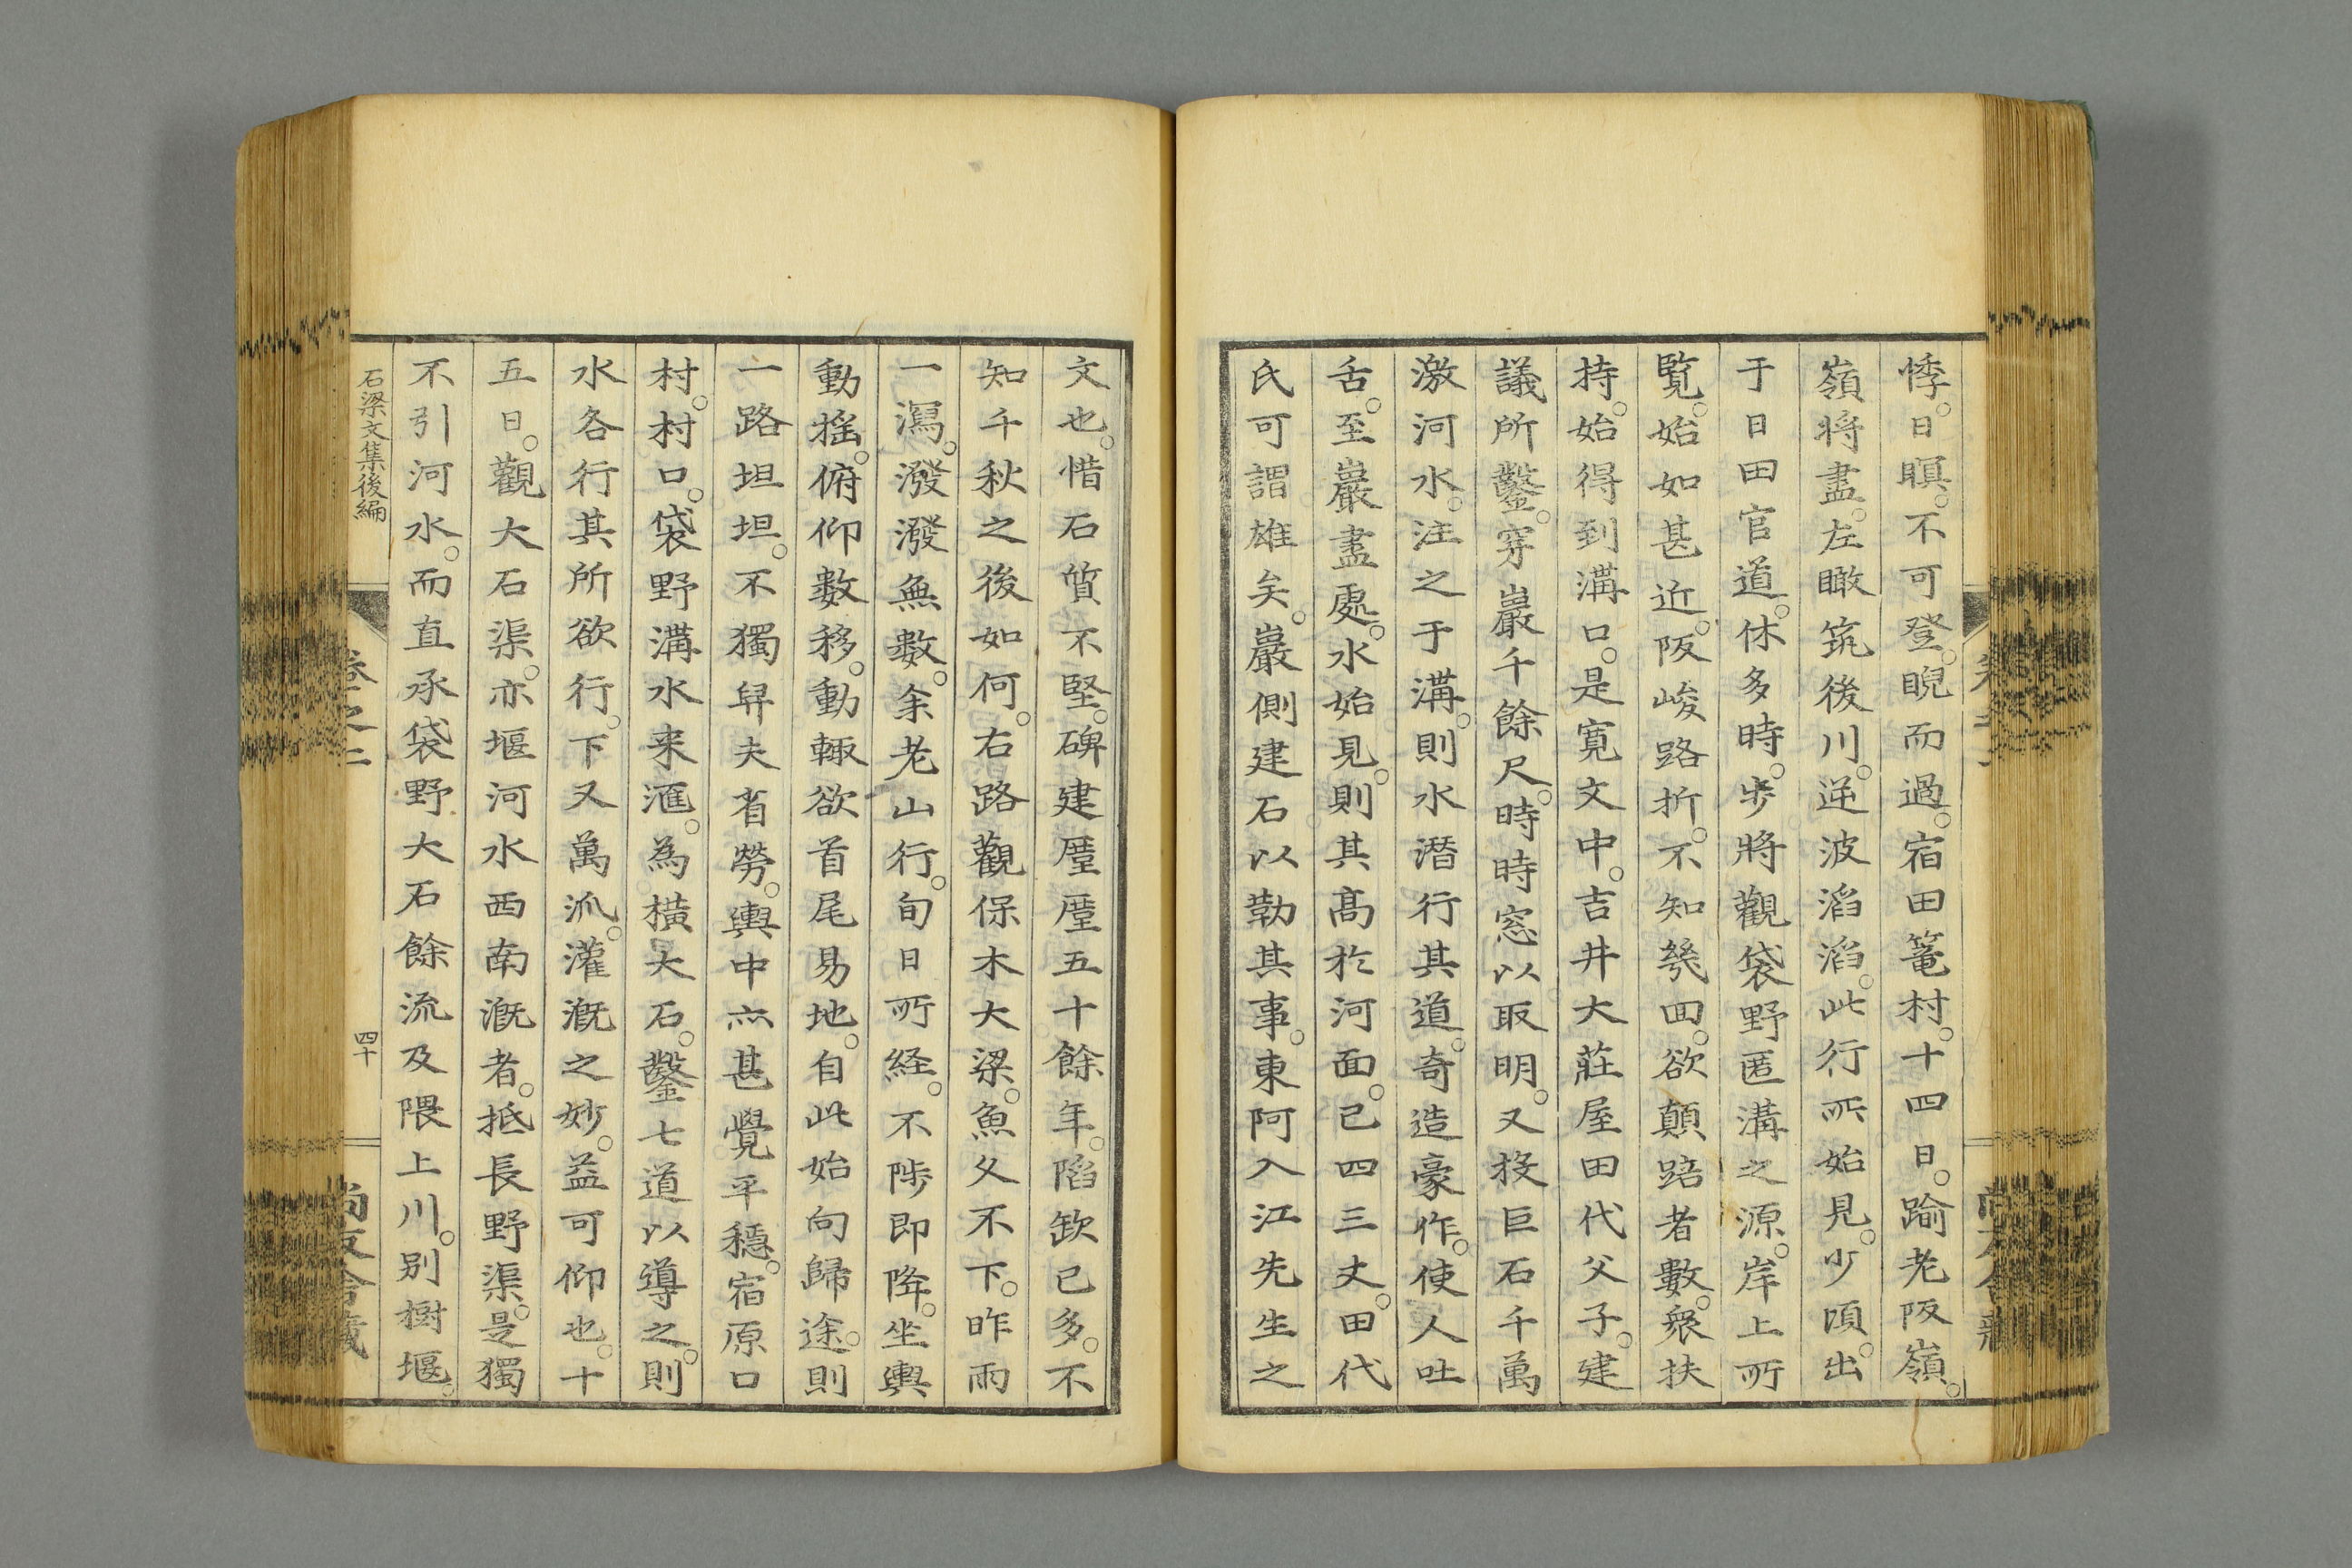 悸。日瞑。不可登。睨而過。宿田篭村。十四日。踰老阪嶺。
嶺将盡。左瞰筑後川。逆波滔滔。此行所始見。少頃。出
于日田官道。休多時。步將觀袋野匿溝之源。岸上所
覧。始如甚近。阪峻路折。不知幾回。欲顛踣者數。衆扶
持。始得到溝口。是寛文中。吉井大莊屋田代父子。建
議所鑿。穿巖千餘尺。時時窓以取明。又投巨石千萬
激河水。注之于溝。則水潛行其道。奇造豪作。使人吐
舌。至巖盡處。水始見。則其髙於河面。已四三丈。田代
氏可謂雄矣。巖側建石以勒其事。東阿入江先生之
文也。惜石質不堅。碑建厪厪五十餘年。陷缺已多。不
知千秋之後如何。右路觀保木大梁。魚父不下。昨雨
一瀉。潑潑無數。余老山行。旬日所経。不陟即降。坐輿
動揺。俯仰數移。動輙欲首尾易地。自此始向歸途。則
一路坦坦。不獨舁夫省勞。輿中亦甚覺平穩。宿原口
村。村口。袋野溝水来滙。為横大石。鑿七道以導之。則
水各行其所欲行。下又萬派。灌漑之妙。益可仰也。十
五日。觀大石渠。亦堰河水西南漑者。抵長野渠。是獨
不引河水。而直承袋野大石餘流及隈上川。别樹堰。
石梁文集後編
卷之二
四十
尚友舎藏